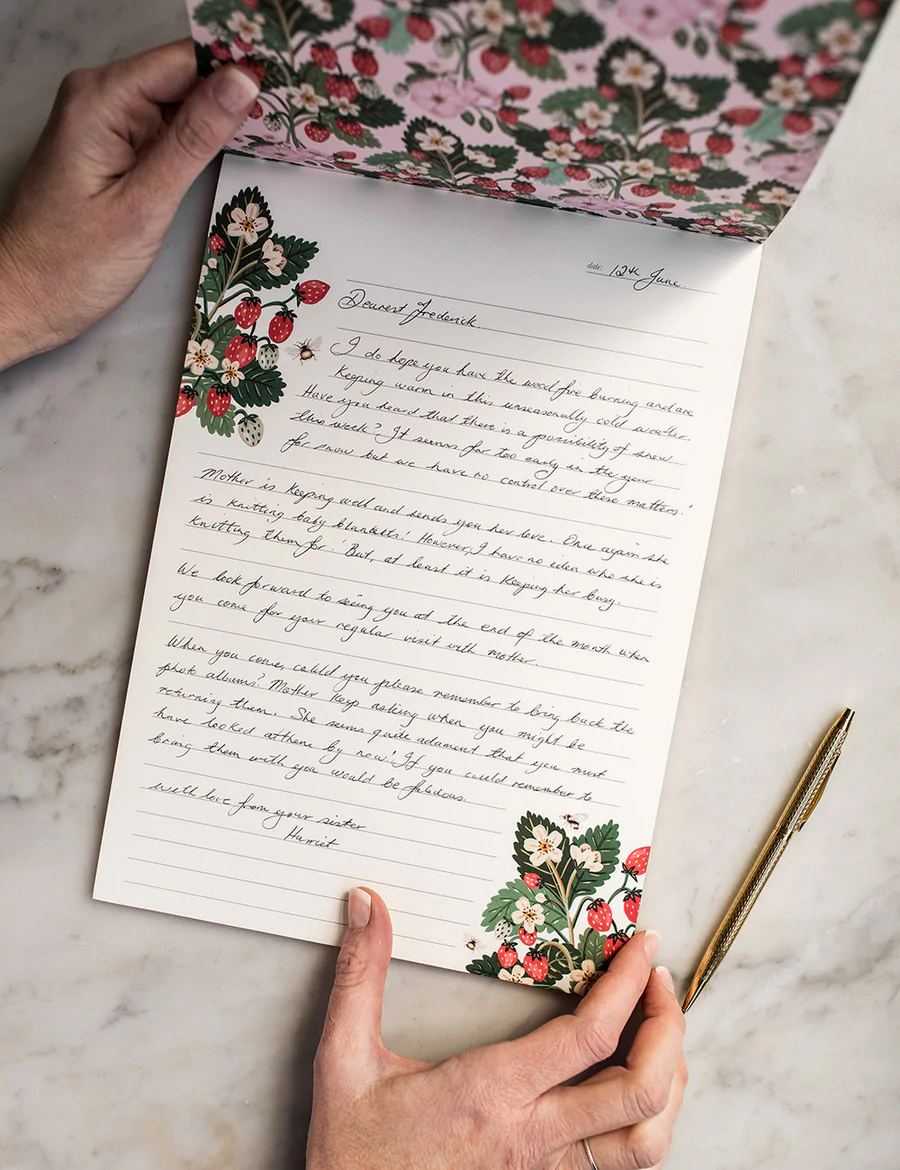 date: 12th June
Dearest Frederick,
I do hope you have the wood fire burning and are
keeping warm in this unseasonally cold weather.
Have you heard that there is a possibility of snow
this week? It seems far too early in the year
for snow but we have no control over these matters!
Mother is keeping well and sends you her love. Once again she
is knitting baby blankets! However, I have no idea who she is
knitting them for! But, at least it is keeping her busy.
We look forward to seeing you at the end of the month when
you come for your regular visit with mother.
When you come, could you please remember to bring back the
photo albums? Mother keep asking when you might be
returning them. She seems quite adamant that you must
have looked at them by now! If you could remember to
bring them with you would be fabulous.
with love from your sister
Harriet